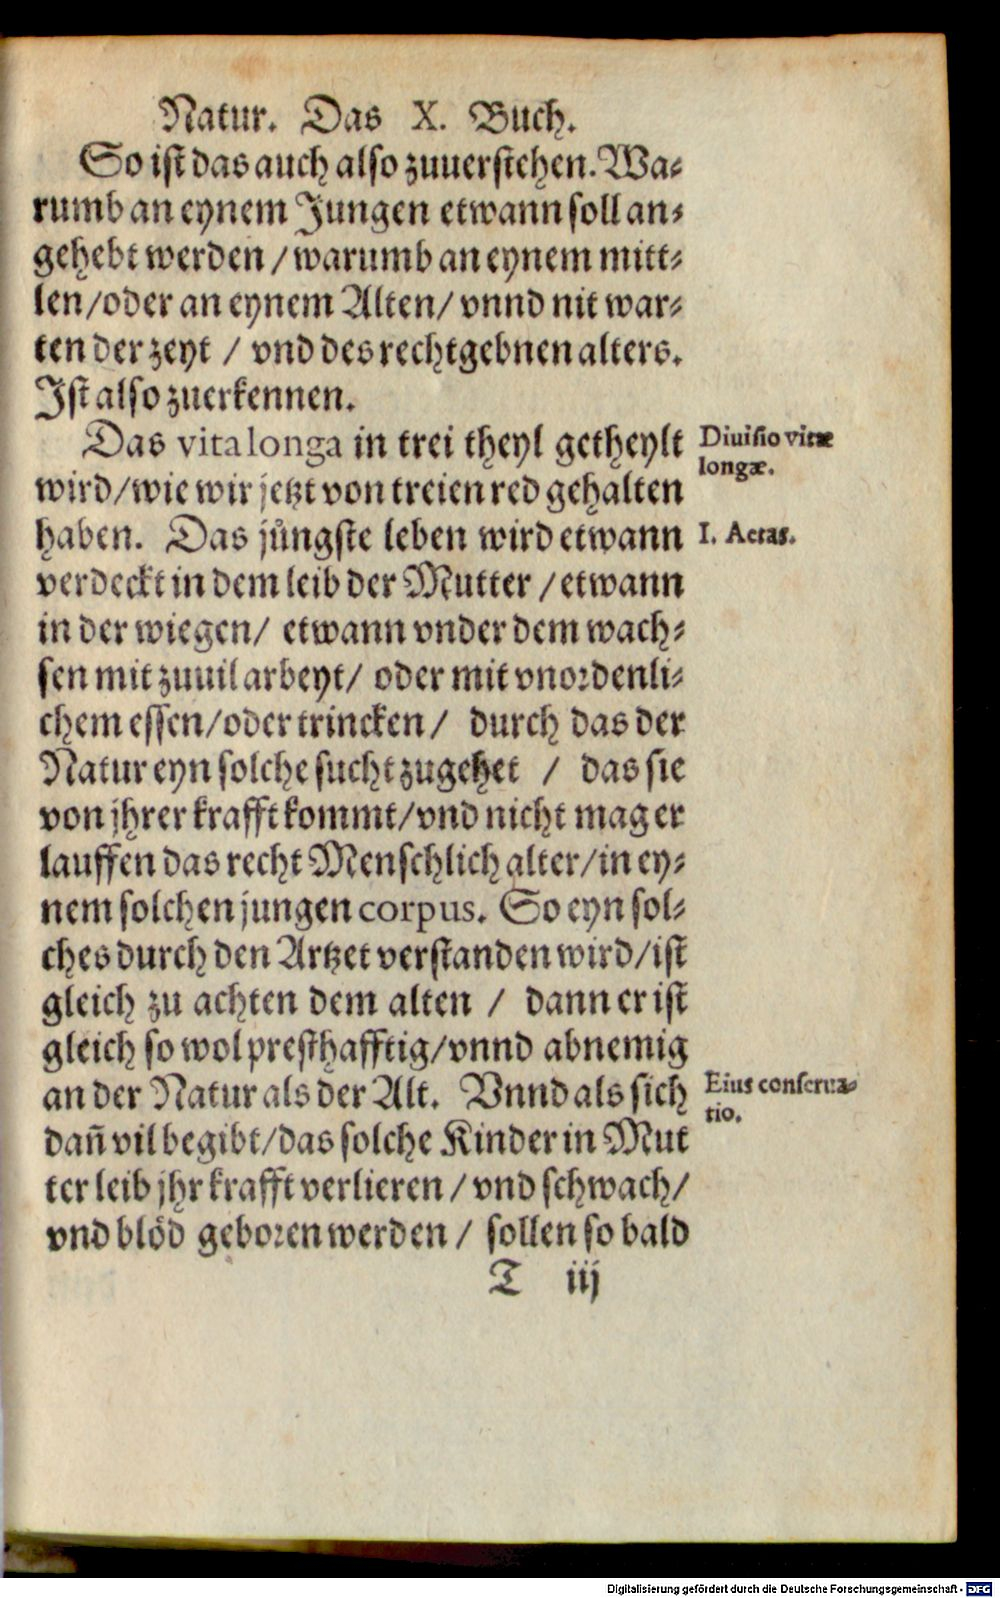 Natur. Das X. Buch.
So ist das auch also zuuerstehen. Wa⸗
rumb an eynem Jungen etwann soll an⸗
gehebt werden / warumb an eynem mitt⸗
len / oder an eynem Alten / vnnd nit war⸗
ten der zeyt / vnd des rechtgebnen alters.
Ist also zuerkennen.
Das vita longa in trei theyl getheylt
Diuisio vitæ
longæ.
wird / wie wir jetzt von treien red gehalten
haben. Das jůngste leben wird etwann
I. Aetas.
verdeckt in dem leib der Mutter / etwann
in der wiegen / etwann vnder dem wach⸗
sen mit zuuil arbeyt / oder mit vnordenli⸗
chem essen / oder trincken / durch das der
Natur eyn solche sucht zugehet / das sie
von jhrer krafft kommt / vnd nicht mag er
lauffen das recht Menschlich alter / in ey⸗
nem solchen jungen corpus. So eyn sol⸗
ches durch den Artzet verstanden wird / ist
gleich zu achten dem alten / dann er ist
gleich so wol presthafftig / vnnd abnemig
an der Natur als der Alt. Vnnd als sich
Eius conserua⸗
tio.
dañ vil begibt / das solche Kinder in Mut
ter leib jhr krafft verlieren / vnd schwach /
vnd blöd geboren werden / sollen so bald
T iij
Digitalisierung gefördert durch die Deutsche Forschungsgemeinschaft - DFG